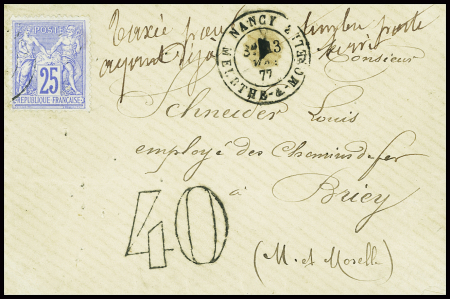 Taxée pour timbre poste
ayant déjà servi
POSTE
25
REPUBLIQUE FRANÇAISE
NANCY
3E 3
77
MEURTHE-&-MOSELLE
Monsieur
Schneider Louis
employé des Chemins de fer
à Briey
(M. et Moselle)
40